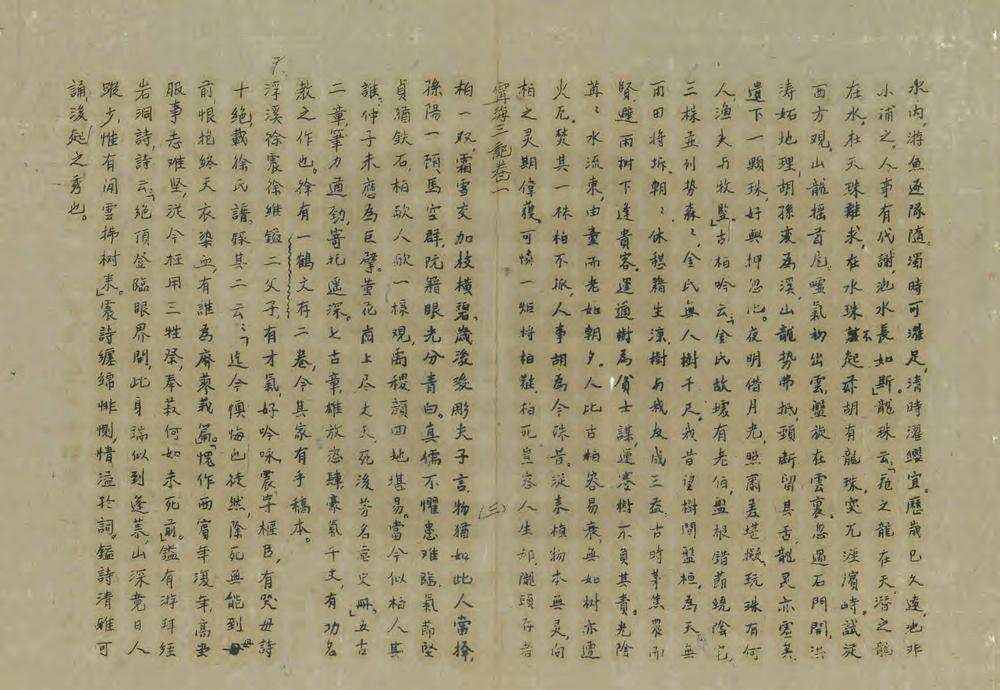 水内，游魚逐隊隨。濁時可濯足，清時濯纓宜。歷歲已久遠，池非
小浦之。人事有代謝，池水長如斯。」龍珠云：「飛之龍在天，潛之龍
在水。在天珠難求，在水珠不起。茲胡有龍珠，突兀涯濱峙。試從
西方觀，山龍搖首尾。噓氣初出雲，盤旋在雲裏。忽遇石門開，洪
濤妬地理。胡孫來為溪，山龍勢弗抵。頸斷留其舌，龍灵亦靈矣。
遺下一顆珠，好與押忽他。夜明借月光，照爾差堪擬。玩珠有何
人，漁夫与牧豎。」古柏吟云：「金氏故墟有老伯，盤根錯節繞陰宅，
三株並列勢森々，金氏無人樹千尺。我昔望樹間盤桓，為天無
雨田將坼。朝々休憩籍生涼，樹与我友成三益。古時茅焦農而
賢，避雨樹下逢貴客。運適樹為貧士謀，運港樹不負其責。光陰
苒々水流東，由童而老如朝夕。人比古柏容易衰，無如树亦遭
火厄。焚其一株柏不孤，人事胡為今殊昔。從来植物本無灵，向
柏之灵期偉蕿。可憐一炬将柏難，柏死豈容人生却。雕頭存者
寧海三記卷一
（三）
柏一双，霜雪交加枝横碧。歲淩淩彫夫子言，物猶如此人當擇，
孫陽一顾馬空群，阮籍眼光分青白。真儒不懼患难臨，氣節堅
貞猶鉄石，柏歟人歟一樣观，禹稷顏回地堪易。當今似柏人其
誰，仲子未應為巨擘。黄花崗上尽丈夫，死後芳名垂史册。」五古
二章，筆力遒劲，寄托遥深。七古章，雄放恣肆，豪氣千丈，有功名
教之作也。徐有一鶴文存二卷，今其家有手稿本。
浮溪徐震、徐維鎰二父子，有才氣，好吟咏，震字樞臣，有哭母詩
十絶，載徐氏譜，錄其二云：「迄今懊悔也徒然，除死無能到母
前。恨抱終天衣染血，有誰為廢蓼莪篇。」「愧作西賓年復年，高堂
服事志难坚，從今枉用三牲祭，奉养何如未死前。」鎰有游玡經
岩洞詩，詩云：「绝頂登臨眼界開，此身端似到蓬莱。山深竟日人
踪少，惟有闲雲拂树来。」震詩纏綿悱惻，情溢於詞。鎰詩清雅可
誦，後起之秀也。